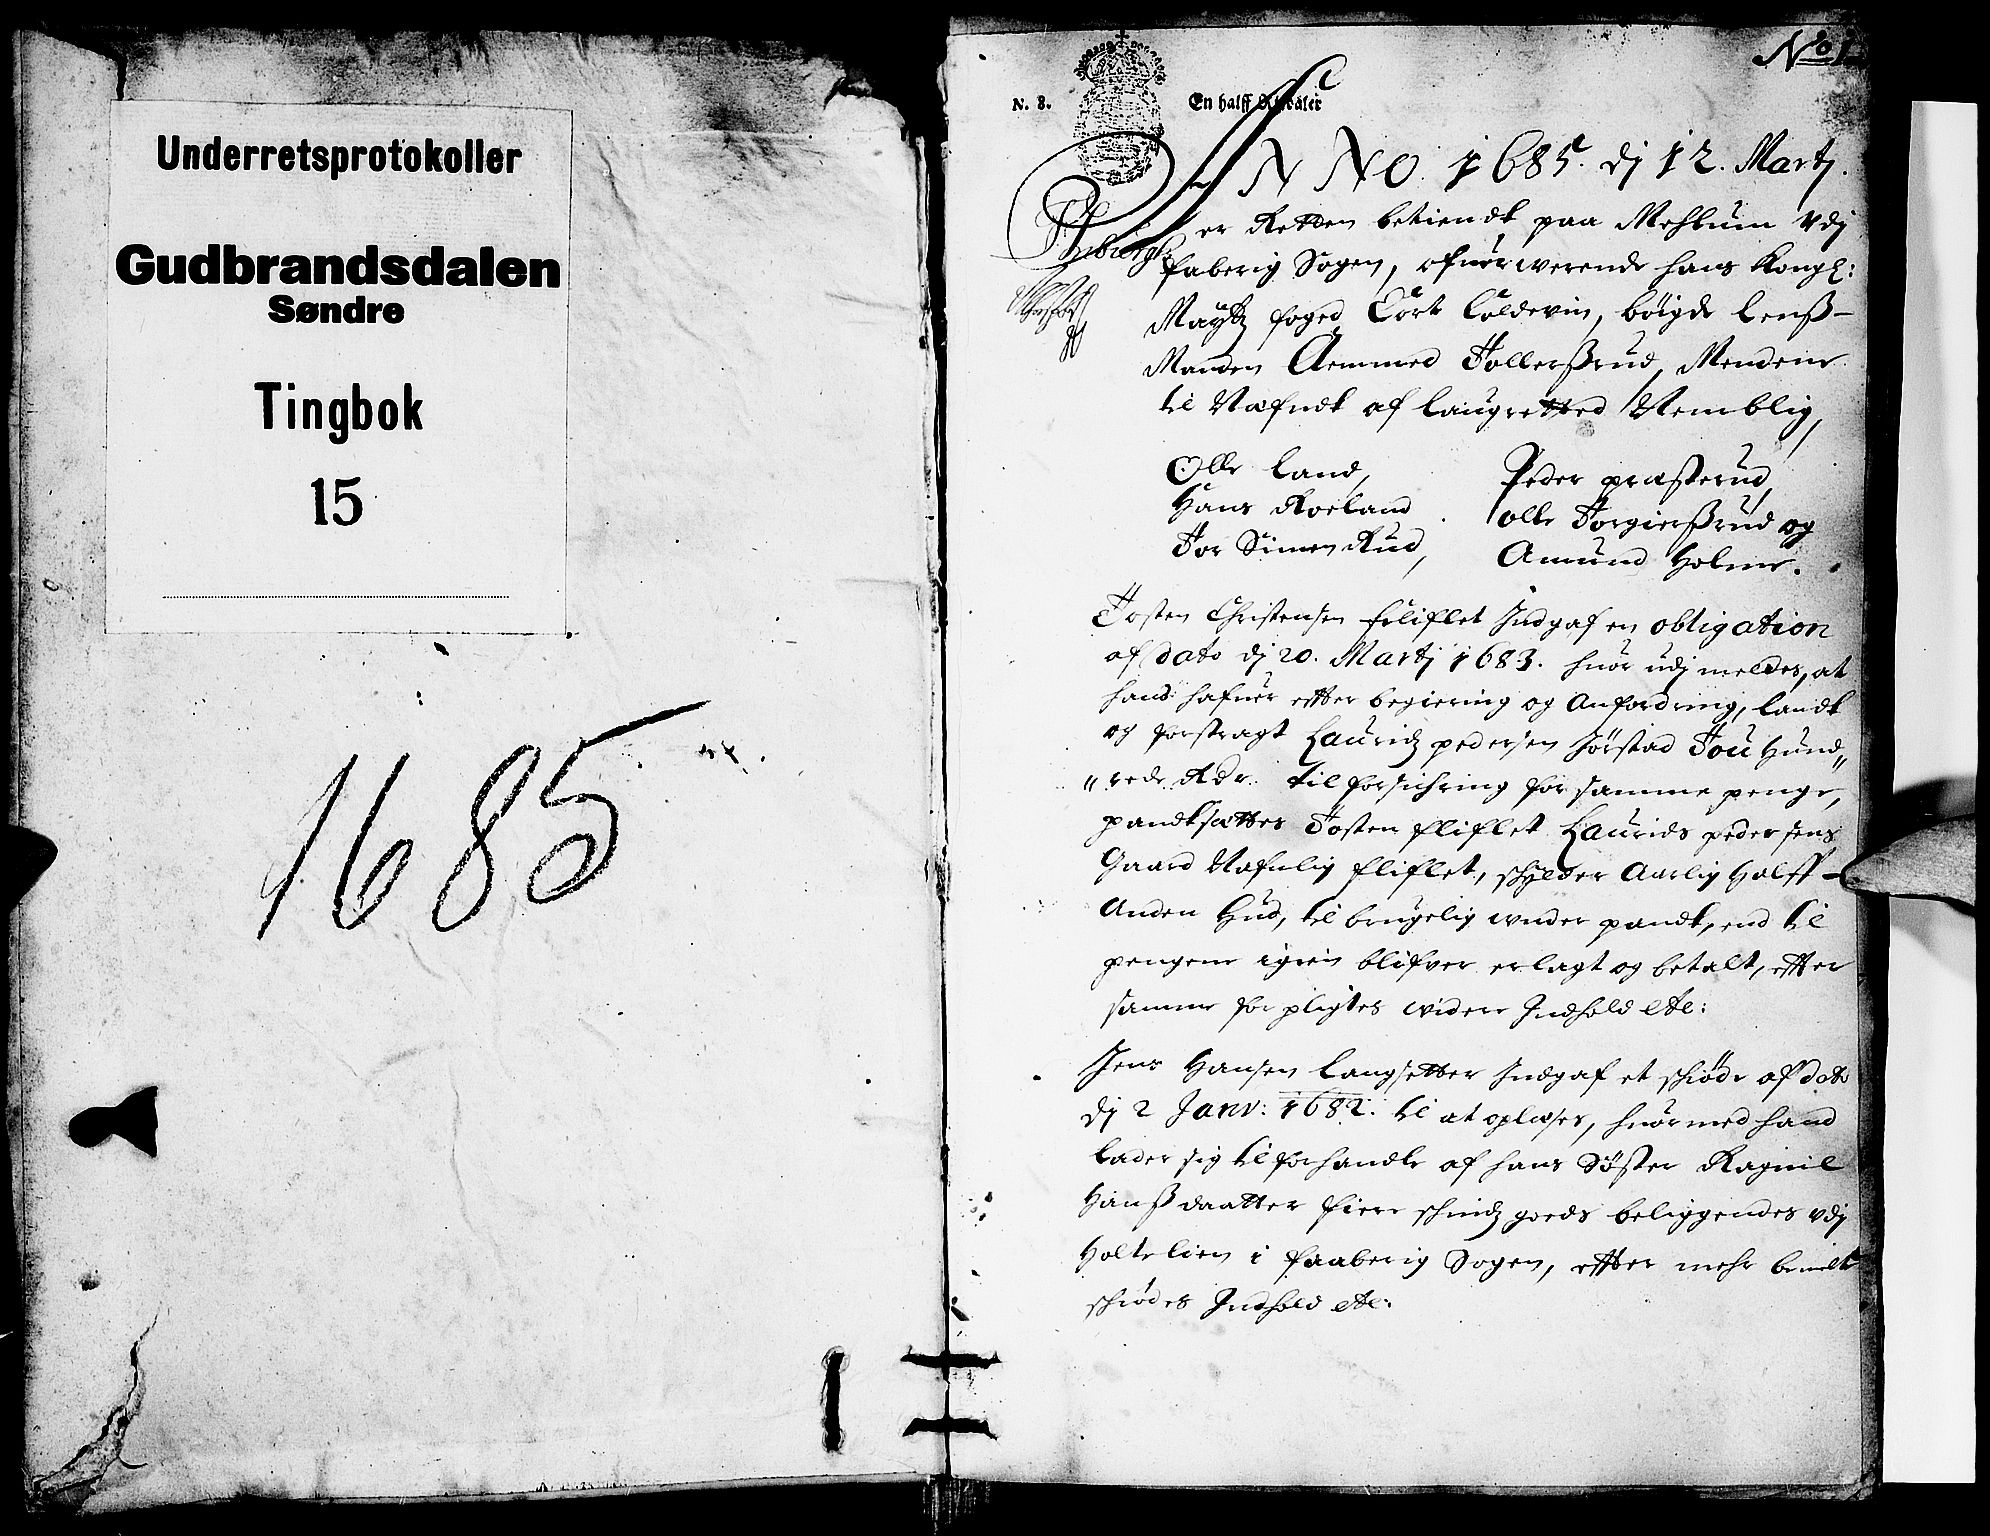 Underretsprotokoller
Gudbrandsdalen
Søndre
Tingbok
15
1685
No 1
N. 8.
En halff Rixdaler
ANNO 1685. dj 12. Martj.
er Retten betiendt paa Mehlum udj
faaberig Sogen, ofuerwerende hans Kongl:
Maytz foged Cort Coldevin, bøigde Lenß-
Manden Aemmed Tollerßrud, Mendene
til Næfndt af laugretted Nemblig,
Olle Land,
Peder præsterud,
Hans Roeland
olle Torgierßrud og
Tor Simen Rud,
Amund Holme.
Tosten Christensen fliflet Indgaf en obligation
af dato dj 20. Martj 1683. huor udj meldes, at
hand hafuer effter begiering og Anfordring, landt
og forstragt Lauridz pedersen Jørstad Tou Hund„
„rede Rdr. til forsichring for samme penge,
pandtsættes Tosten fliflet Laurids pedersens
Gaard Nafnlig fliflet, schylder Aarlig Halff-
Anden Hud, til brugelig under pandt, end til
pengene igien blifver erlagt og betalt, effter
samme forpligtes widere Indhold etc:
Jens Hansen Langsetter Indgaf et schiøde af dato
dj 2 Janv: 1682. til at oplæses, huormed hand
lader sig tilforhandle af hans Søster Ragnil
Hanßdaatter fiere schindz goeds beliggendes udj
Holtelien i faaberig Sogen, effter mehr bemelte
schiødes Indhold etc: